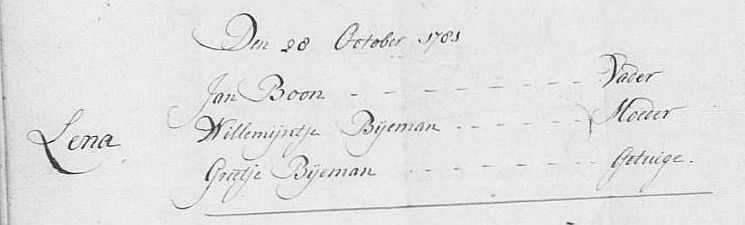 Den 28 October 1781
Jan Boon - - - - - - - Vader
Lena Willemijntje Bijeman - - - - - Moeder
Grietje Bijeman - - - - - - - Getuige.